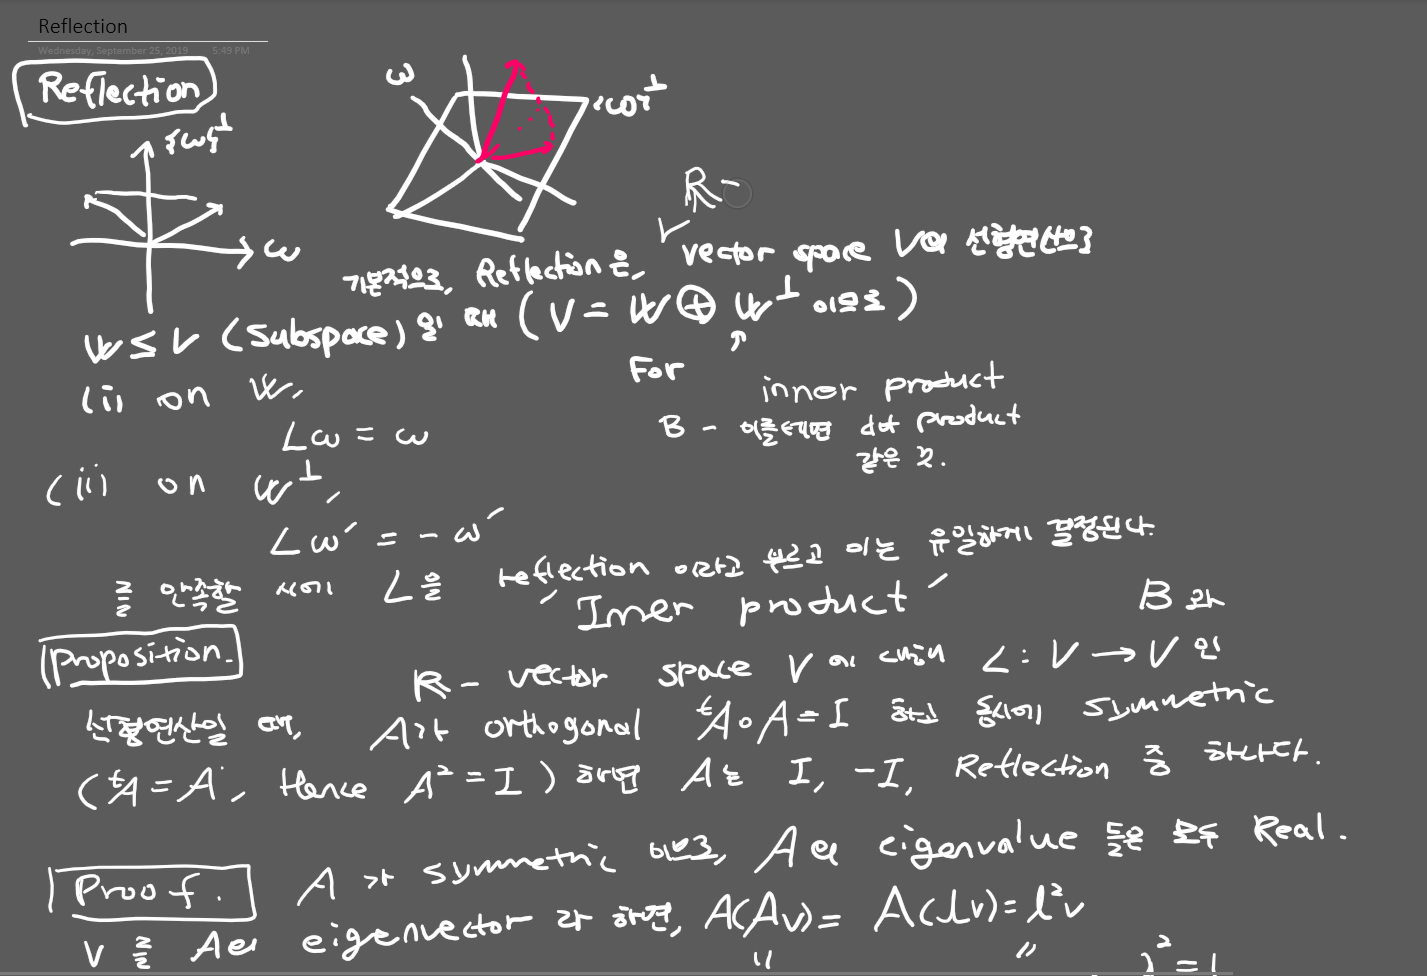 Reflection
Wednesday, September 25, 2019 5:49 PM
Reflection
{ω}⊥
ω
ω
<ω>⊥
R-
기본적으로, Reflection은, vector space V의 선형연산으로
W ≤ V (subspace) 일 때 (V = W ⊕ W⊥ 이므로)
For
inner product
B - 이를테면 dot product
같은 것.
(i) on W,
Lω = ω
(ii) on W⊥,
Lω′ = -ω′
를 만족할 시에 L을 reflection 이라고 부르고 이는 유일하게 결정된다.
Inner product B 와
Proposition.
R - vector space V 에 대해 L : V → V 인
선형연산일 때, A가 orthogonal ᵗA∘A = I 하고 동시에 symmetric
(ᵗA = A, Hence A² = I) 하면 A는 I, -I, Reflection 중 하나다.
Proof. A가 symmetric 이므로, A의 eigenvalue 들은 모두 Real.
v 를 A의 eigenvector 라 하면, A(Av) = A(λv) = λ²v
λ² = 1